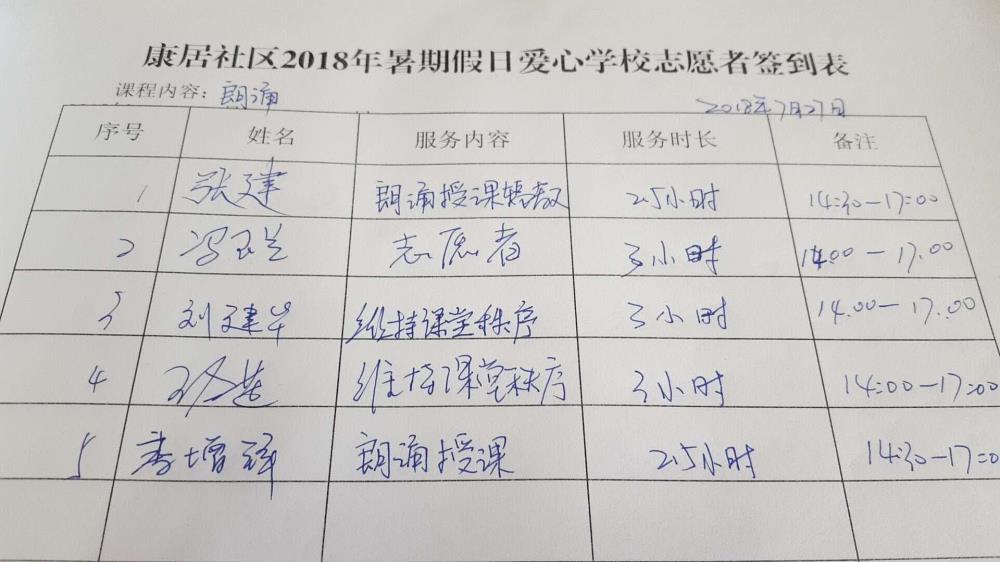 康居社区2018年暑期假日爱心学校志愿者签到表
课程内容：朗诵 2018年7月27日
序号 姓名 服务内容 服务时长 备注
1 张建 朗诵授课 2.5小时 14:30-17:00
2 冯玉兰 志愿者 3小时 14:00-17:00
3 刘建华 维持课堂秩序 3小时 14:00-17:00
4 维持课堂秩序 3小时 14:00-17:00
5 李增祥 朗诵授课 2.5小时 14:30-17:0